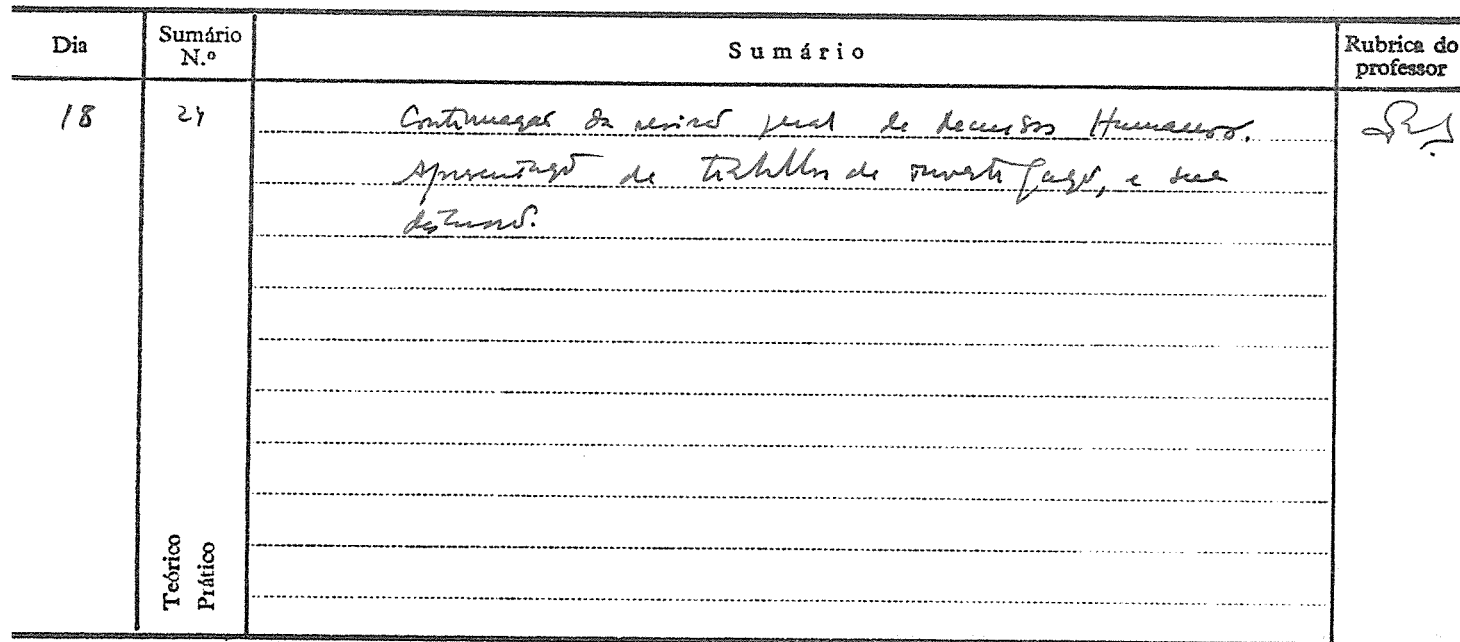 Dia
Sumário N.º
Sumário
Rubrica do professor
18
24
Continuação da revisão geral de Recursos Humanos.
Apresentação de trabalhos de investigação, e sua
discussão.
Teórico
Prático